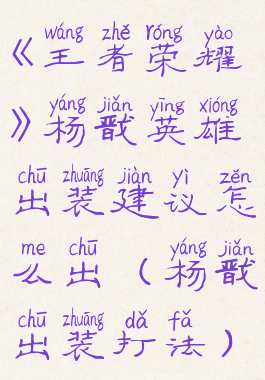 wáng zhě róng yào
《王者荣耀
yáng jiǎn yīng xióng
》杨戬英雄
chū zhuāng jiàn yì zěn
出装建议怎
me chū yáng jiǎn
么出（杨戬
chū zhuāng dǎ fǎ
出装打法）